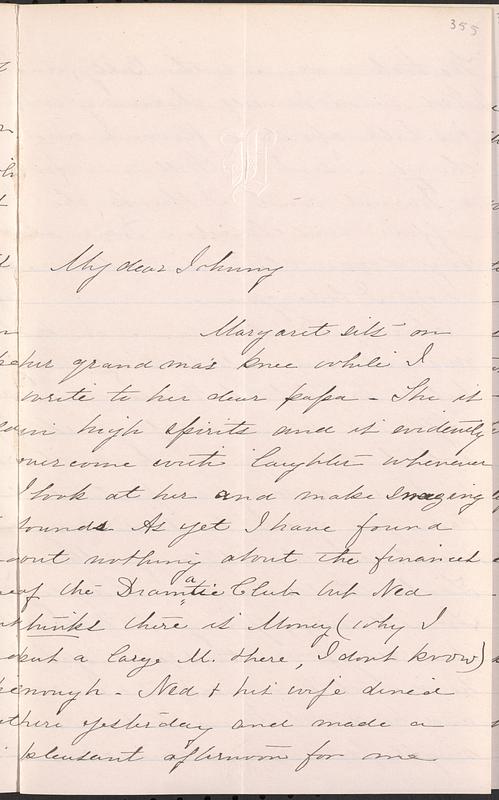 355
My dear Johnny
Margaret sits on
her grandma's knee while I
write to her dear papa - She is
in high spirits and is evidently
overcome with laughter whenever
I look at her and make
sounds As yet I have found
out nothing about the finances
of the Dramatic Club but Ned
thinks there is Money (why I
put a large M. there, I dont know)
enough - Ned & his wife dined
here yesterday and made a
pleasant afternoon for me